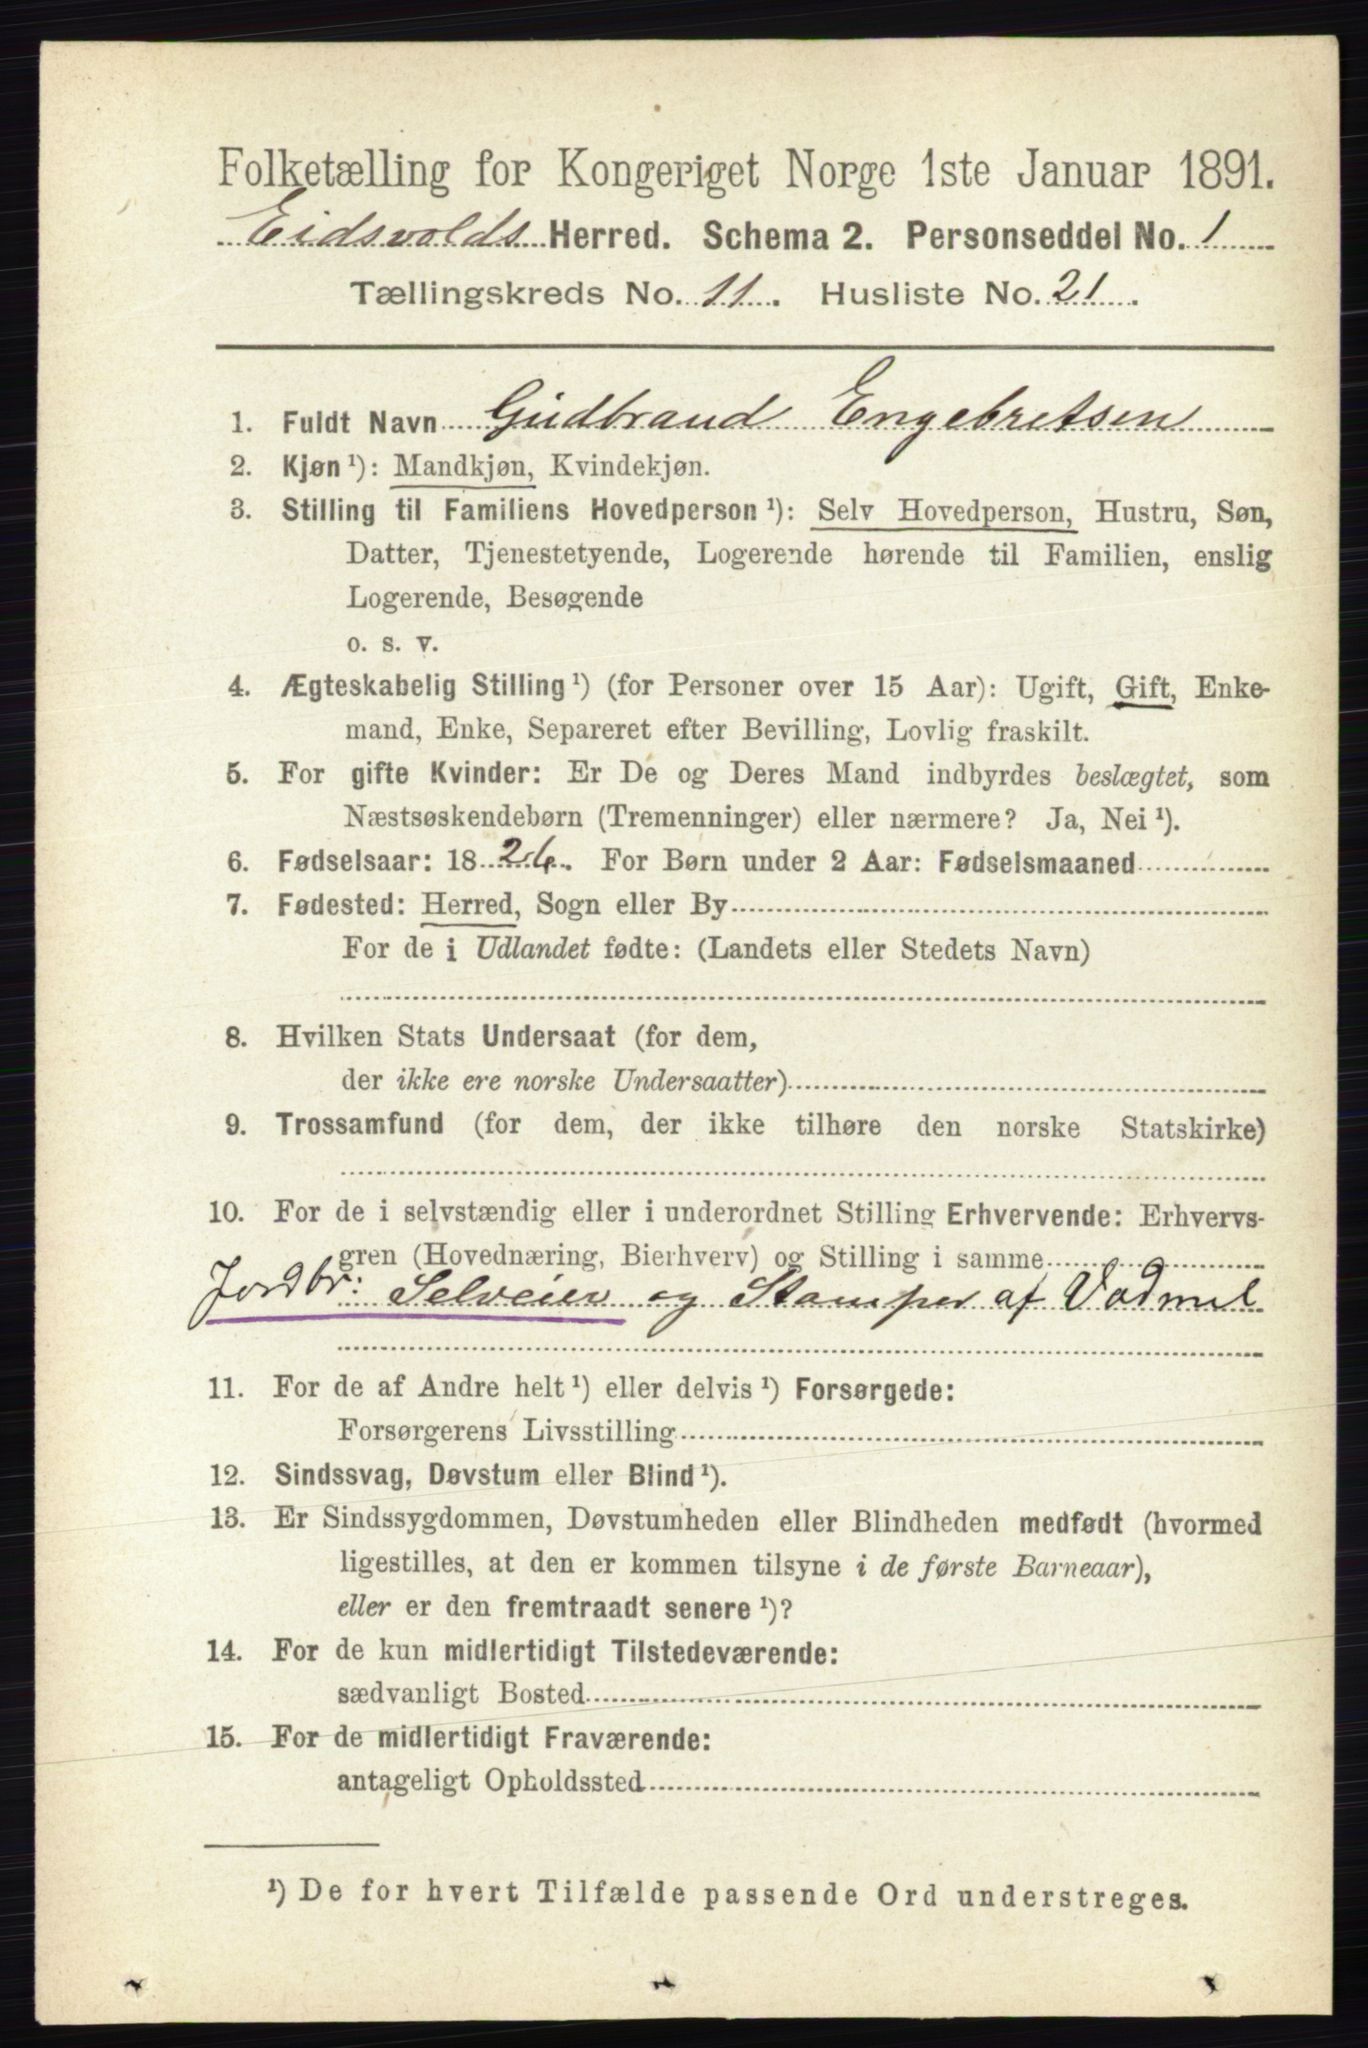 Folketælling for Kongeriget Norge 1ste Januar 1891.
Eidsvolds Herred. Schema 2. Personseddel No. 1
Tællingskreds No. 11. Husliste No. 21.
1. Fuldt Navn Gudbrand Engebretsen
2. Kjøn ¹): Mandkjøn, Kvindekjøn.
3. Stilling til Familiens Hovedperson ¹): Selv Hovedperson, Hustru, Søn,
Datter, Tjenestetyende, Logerende hørende til Familien, enslig
Logerende, Besøgende
o. s. v.
4. Ægteskabelig Stilling ¹) (for Personer over 15 Aar): Ugift, Gift, Enke-
mand, Enke, Separeret efter Bevilling, Lovlig fraskilt.
5. For gifte Kvinder: Er De og Deres Mand indbyrdes beslægtet, som
Næstsøskendebørn (Tremenninger) eller nærmere? Ja, Nei ¹).
6. Fødselsaar: 1824. For Børn under 2 Aar: Fødselsmaaned
7. Fødested: Herred, Sogn eller By
For de i Udlandet fødte: (Landets eller Stedets Navn)
8. Hvilken Stats Undersaat (for dem,
der ikke ere norske Undersaatter)
9. Trossamfund (for dem, der ikke tilhøre den norske Statskirke)
10. For de i selvstændig eller i underordnet Stilling Erhvervende: Erhvervs-
gren (Hovednæring, Bierhverv) og Stilling i samme
Jordbr: Selveier og Stamper af Vadmel
11. For de af Andre helt ¹) eller delvis ¹) Forsørgede:
Forsørgerens Livsstilling
12. Sindssvag, Døvstum eller Blind ¹).
13. Er Sindssygdommen, Døvstumheden eller Blindheden medfødt (hvormed
ligestilles, at den er kommen tilsyne i de første Barneaar),
eller er den fremtraadt senere ¹)?
14. For de kun midlertidigt Tilstedeværende:
sædvanligt Bosted
15. For de midlertidigt Fraværende:
antageligt Opholdssted
¹) De for hvert Tilfælde passende Ord understreges.